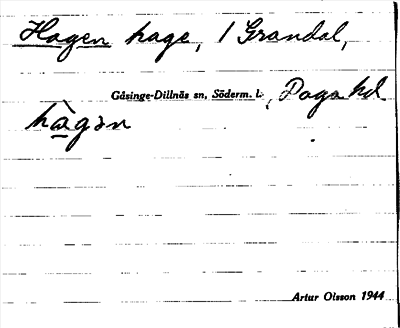 Hagen hage, 1 Grandal,
Gåsinge-Dillnäs sn, Söderm. l., Daga hd
hà̱gən
Artur Olsson 1944